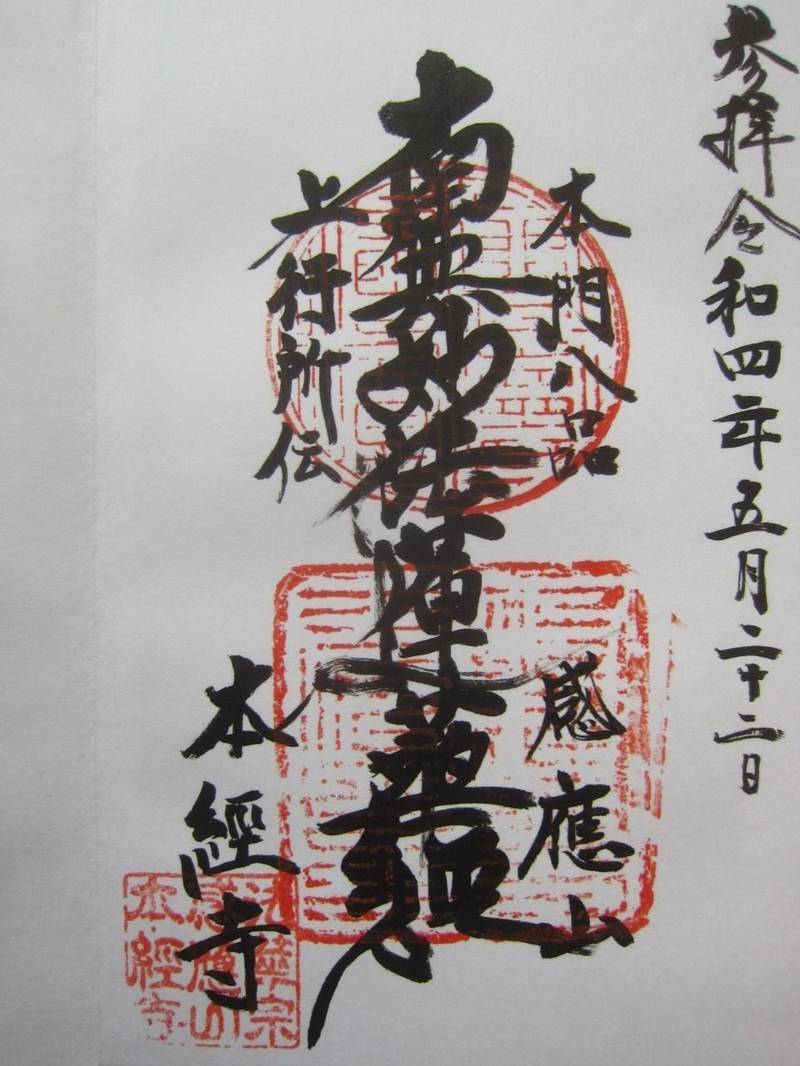 参拝令和四年五月二十二日
本門八品
南無妙法蓮華経
上行所伝
感應山
本經寺
法華宗
感應山
本經寺